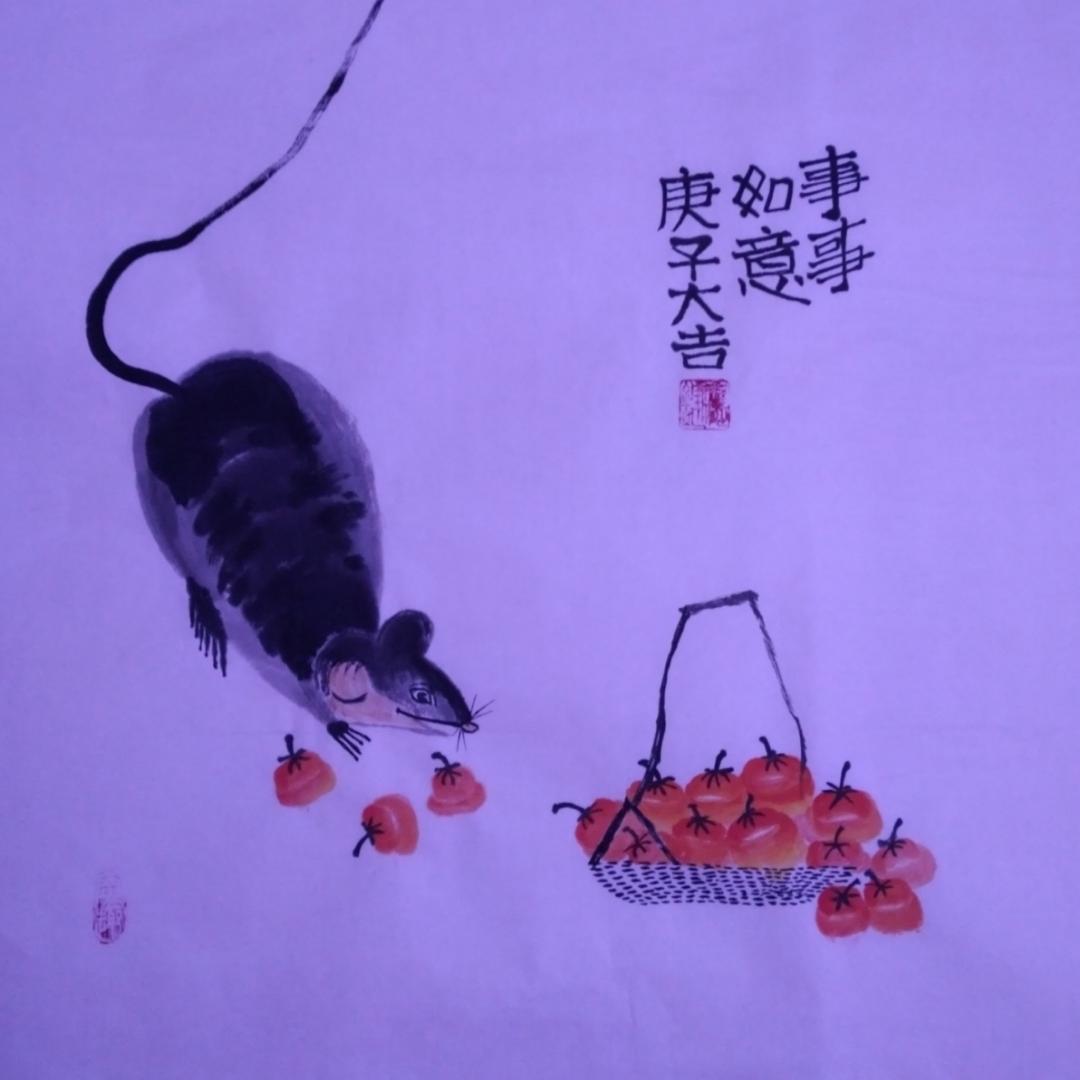 事事
如意
庚子大吉